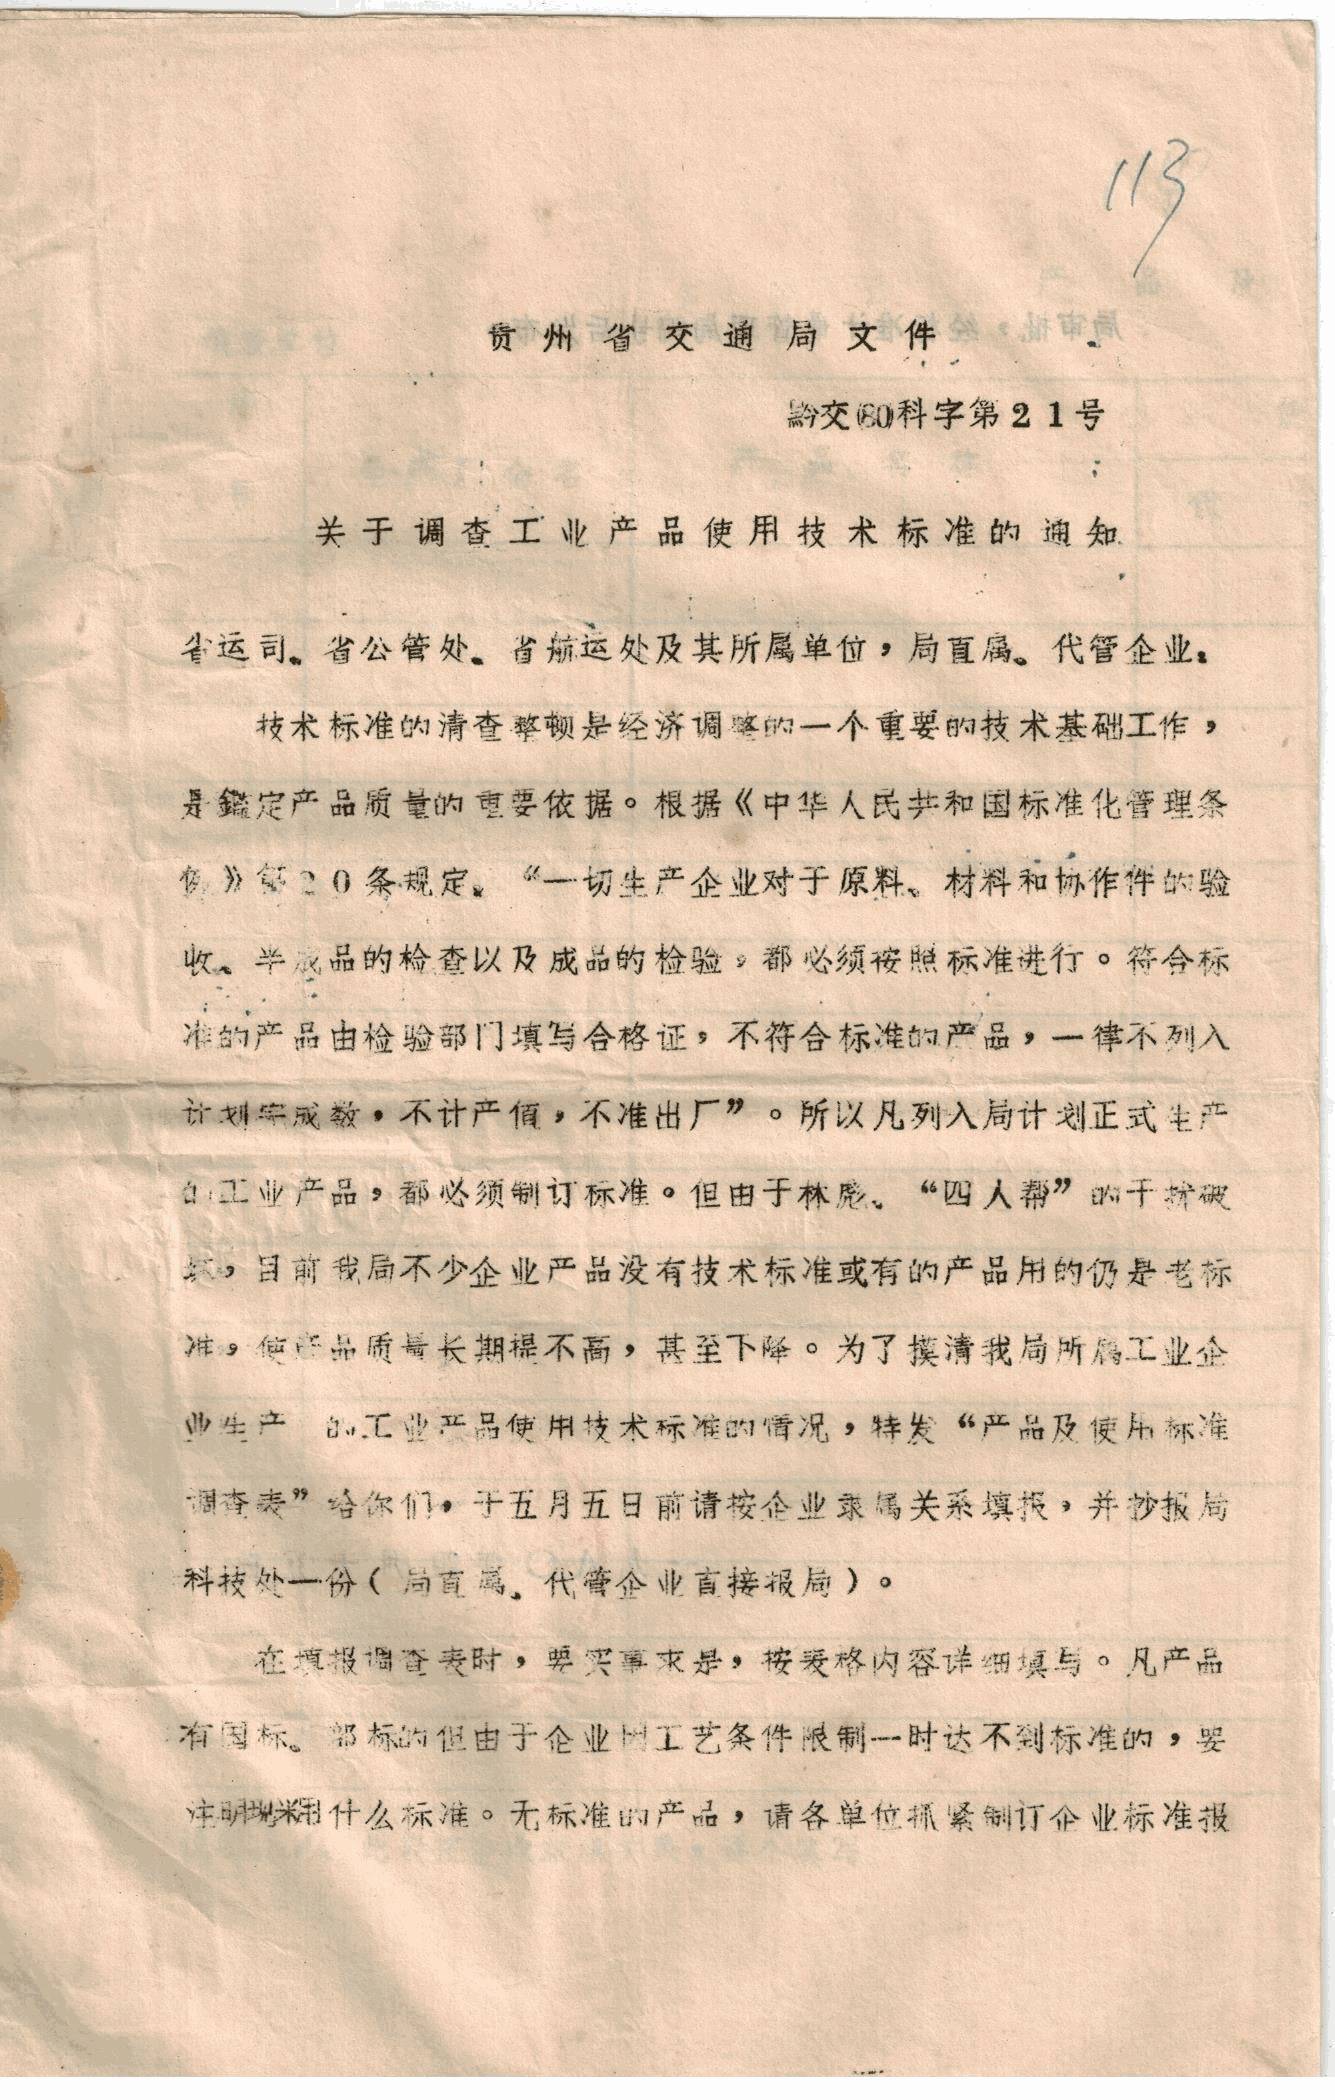 113
贵州省交通局文件
黔交(80)科字第21号
关于调查工业产品使用技术标准的通知
省运司、省公管处、省航运处及其所属单位，局直属、代管企业：
技术标准的清查整顿是经济调整的一个重要的技术基础工作，
是鑑定产品质量的重要依据。根据《中华人民共和国标准化管理条
例》第20条规定、“一切生产企业对于原料、材料和协作件的验
收、半成品的检查以及成品的检验，都必须按照标准进行。符合标
准的产品由检验部门填写合格证，不符合标准的产品，一律不列入
计划完成数，不计产值，不准出厂”。所以凡列入局计划正式生产
的工业产品，都必须制订标准。但由于林彪、“四人帮”的干扰破
坏，目前我局不少企业产品没有技术标准或有的产品用的仍是老标
准，使产品质量长期提不高，甚至下降。为了摸清我局所属工业企
业生产 的工业产品使用技术标准的情况，特发“产品及使用标准
调查表”给你们，于五月五日前请按企业隶属关系填报，并抄报局
科技处一份（局直属、代管企业直接报局）。
在填报调查表时，要实事求是，按表格内容详细填写。凡产品
有国标、部标的但由于企业因工艺条件限制一时达不到标准的，要
注明现采用什么标准。无标准的产品，请各单位抓紧制订企业标准报